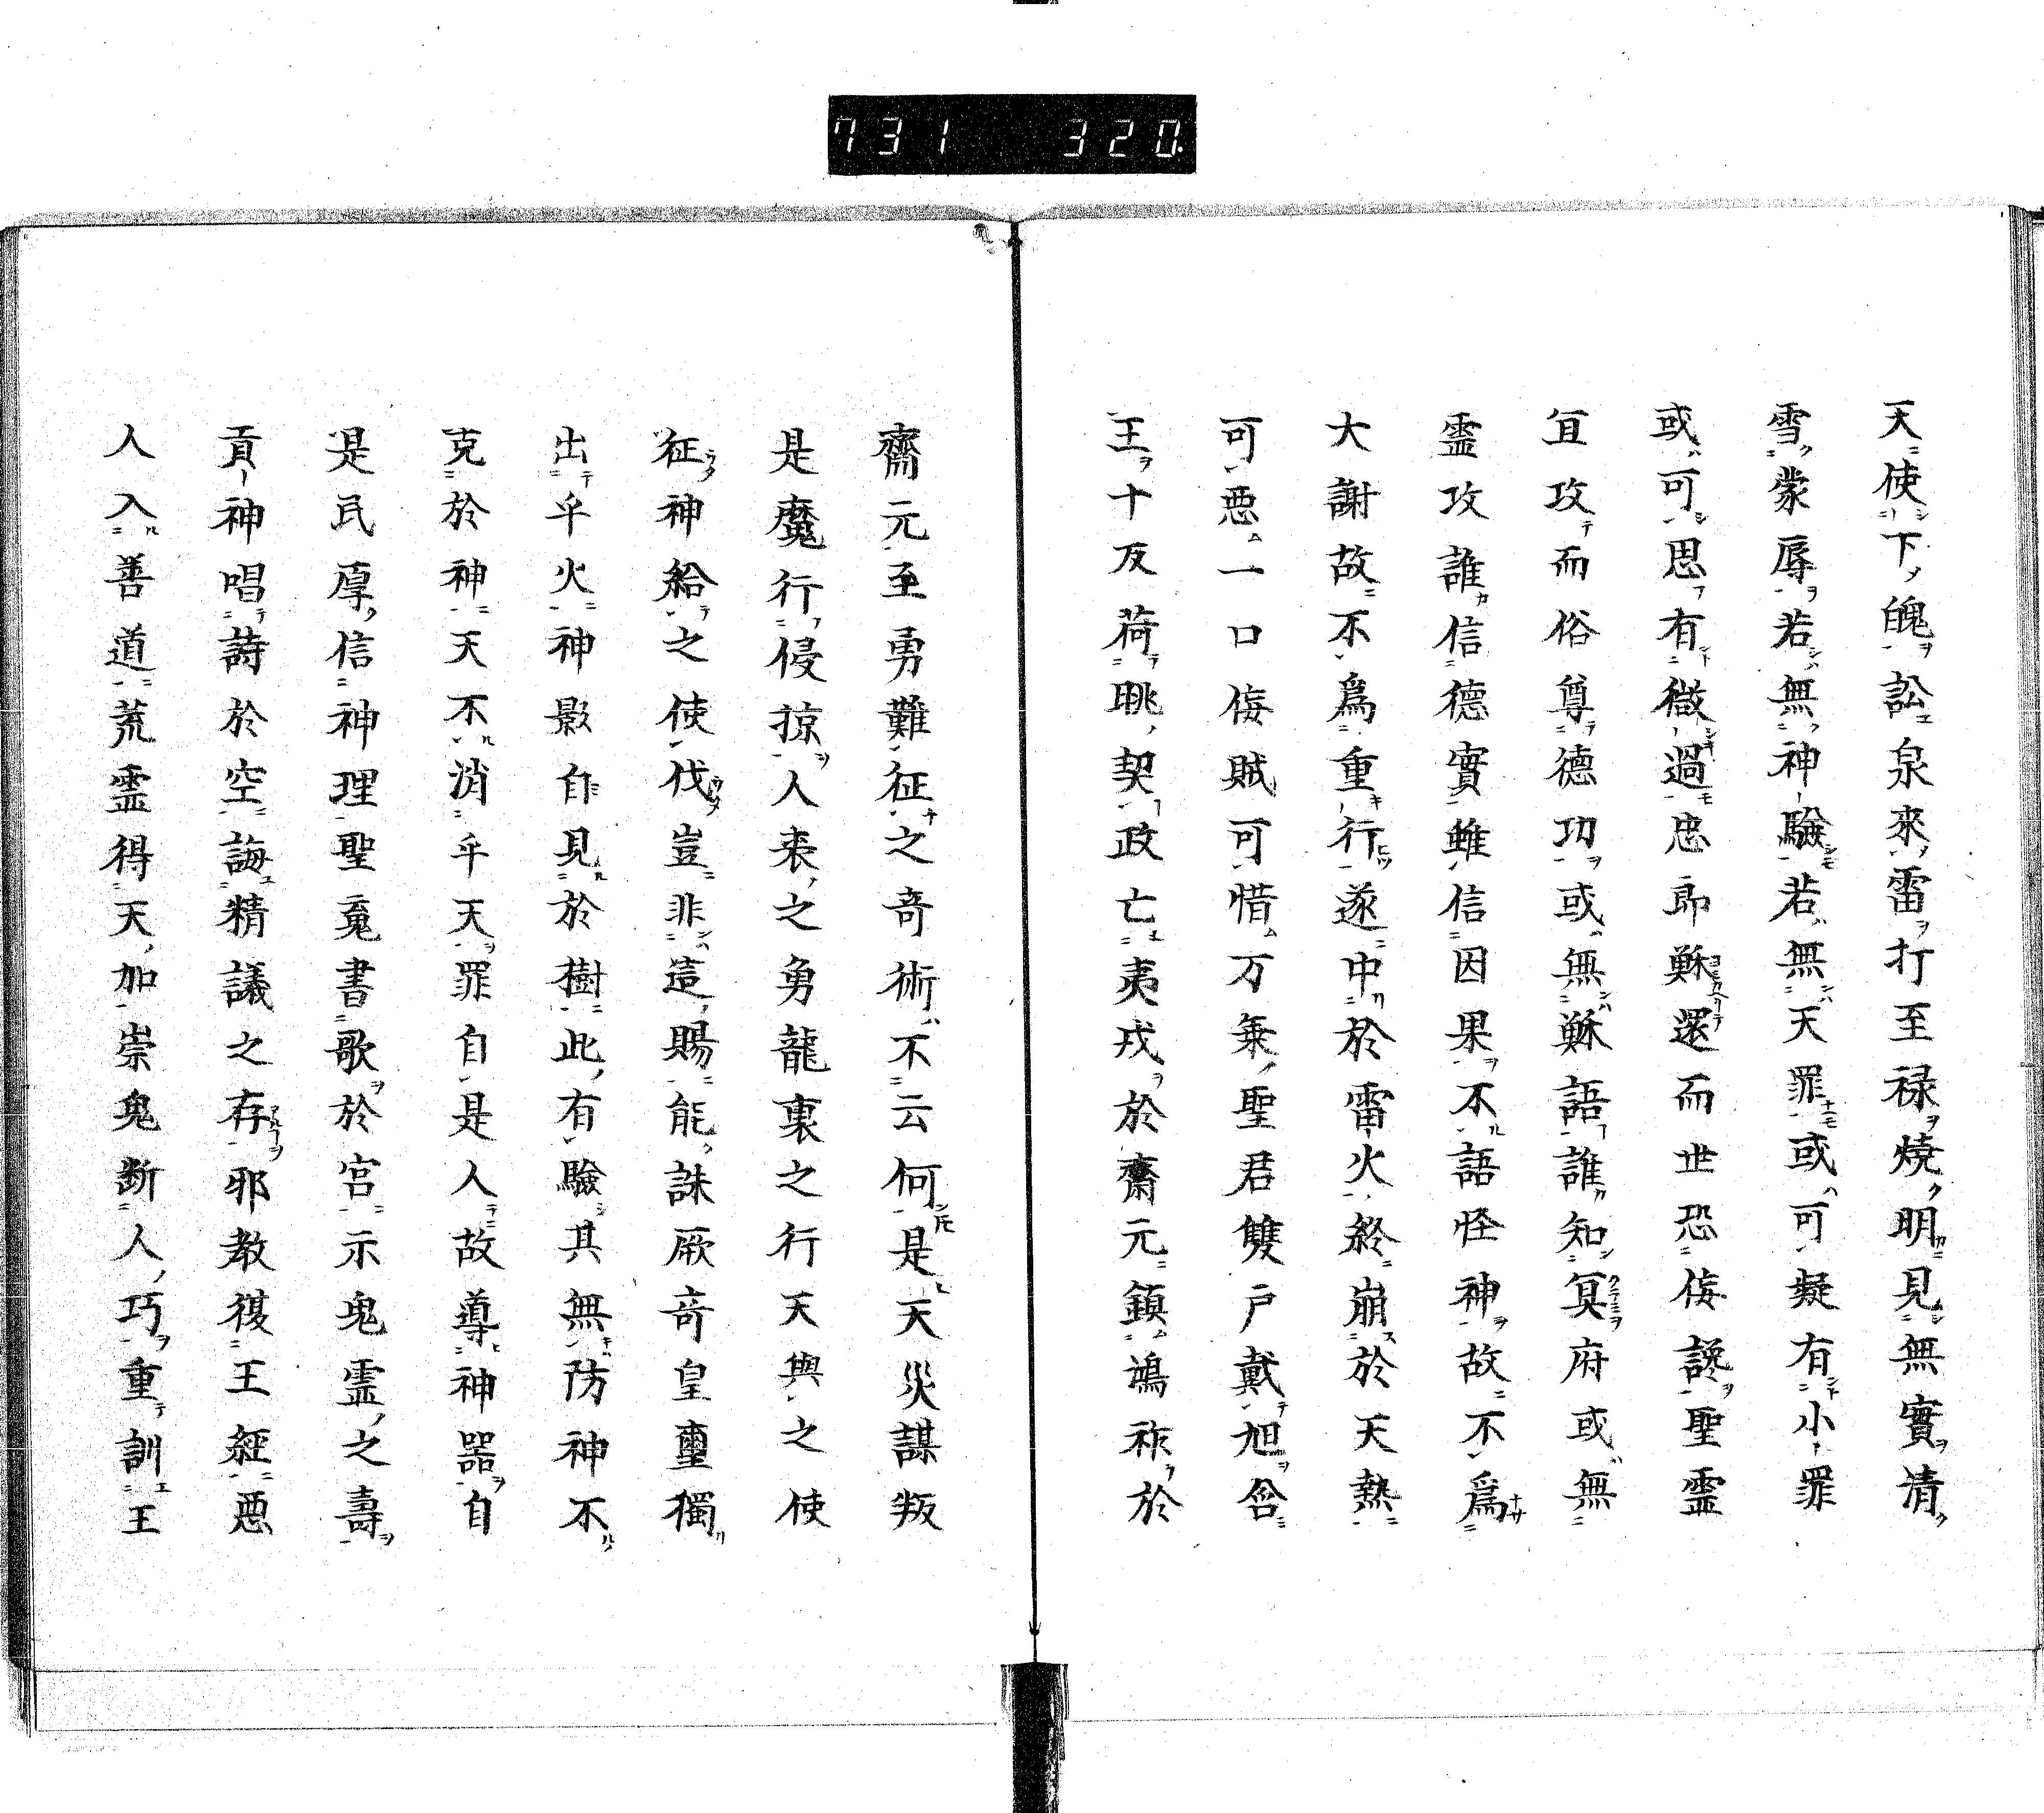 731 320.
天使下魄訟泉來雷打至禄燒明見無實清
雪蒙辱若無神驗若無天罪或可疑有小罪
或可思有徴過忠郎穌還而世恐侮讒聖霊
宜攻而俗尊德功或無穌語誰知冥府或無
霊攻誰信德實雖信因果不語怪神故不爲
大謝故不爲重行遂中於雷火終崩於天熱
可惡一口侮賊可惜万乗聖君雙戸戴旭含
王十反荷眺契政亡夷戎於齋元鎮鴻祚於
齋元至勇難征之奇術不云何是天災謀叛
是魔行侵掠人表之勇龍裏之行天與之使
征神給之使伐豈非這賜能誅厥奇皇璽獨
出乎火神影自見於樹此有驗其無防神不
克於神天不消乎天罪自是人故導神器自
是民厚信神理聖寃書歌於宮示鬼霊之壽
貢神唱詩於空誨精議之存邪教復王經惡
人入善道荒霊得天加崇鬼断人巧重訓王